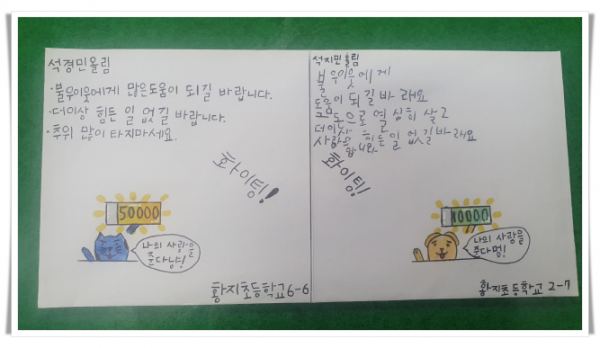 석경민올림
·불우이웃에게 많은도움이 되길 바랍니다.
·더이상 힘든 일 없길 바랍니다.
·추위 많이 타지마세요.
화이팅!
50000
나의 사랑을
준다냥!
황지초등학교 6-6
석지민올림
불우이웃에게
도움이 되길바래요
돈으로 열심히 살고
더이상 힘든일 없길바래요
사랑합니다.
화이팅!
10000
나의 사랑을
준다멍!
황지초등학교 2-7